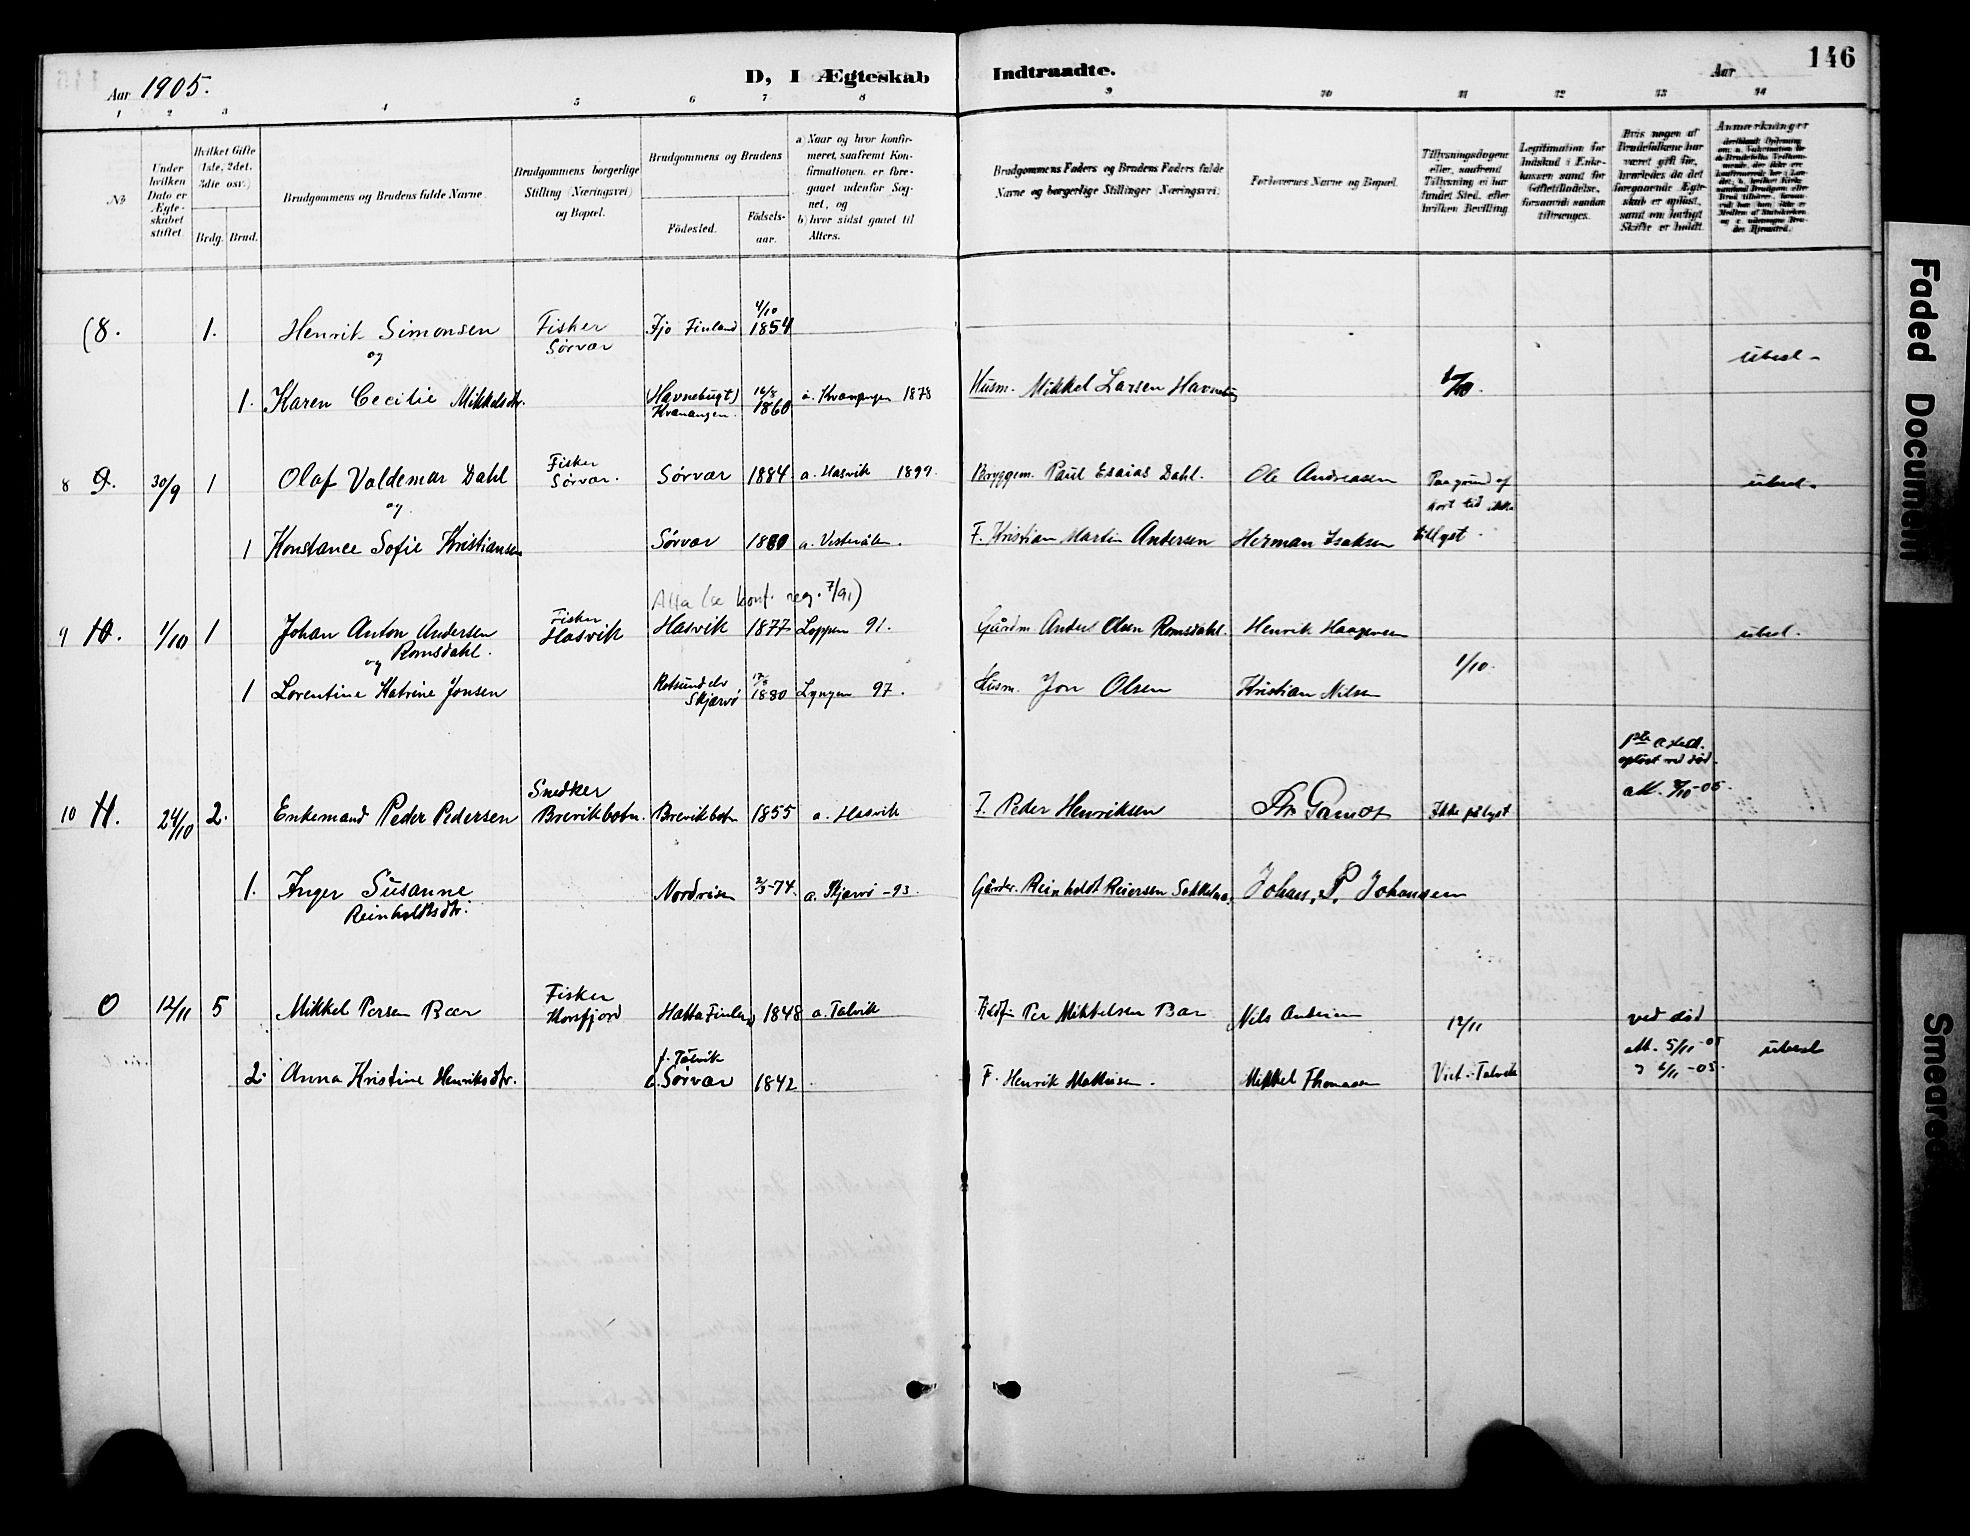 Aar 1905.
D, I Ægteskab Indtraadte.
Aar
146
1 2 3 4 5 6 7 8 9 10 11 12 13 14
No
Under hvilken Dato er Ægteskabet stiftet.
Hvilket Gifte (1ste, 2det, 3die osv.)
Brdg. Brud.
Brudgommens og Brudens fulde Navne.
Brudgommens borgerlige Stilling (Næringsvei) og Bopæl.
Brudgommens og Brudens
Fødested.
Fødselsaar.
a) Naar og hvor konfirmeret, saafremt Konfirmationen er foregaaet udenfor Sognet, og
b) hvor sidst gaaet til Alters.
Brudgommens Faders og Brudens Faders fulde Navne og borgerlige Stillinger (Næringsvei)
Forlovernes Navne og Bopæl.
Tillysningsdagene eller, saafremt Tillysning ei har fundet Sted, efter hvilken Bevilling
Legitimation for Indskud i Enkekassen samt for Giftetilladelse, forsaavidt saadan tiltrænges.
Hvis nogen af Brudefolkene har været gift før, hvorledes da det foregaaende Ægteskab er opløst, samt om lovligt Skifte er holdt.
Anmærkninger
(8. 1. Henrik Simonsen Fisker Ijo Finland 4/10 1854
og Sørvær
ubesl.
1. Karen Cecilie Mikkelsdtr. (Havnebugt) Kvænangen. 16/8 1860 a. Kvænangen 1878 Husm. Mikkel Larsen
8 9. 30/9 1 Olaf Valdemar Dahl Fisker Sørvær. Sørvær 1884 a. Hasvik 1899. Bryggem. Paul Esaias Dahl. Ole Andreasen Paa grund af kort tid ikke ubesl.
og
1 Konstance Sofie Kristiansen Sørvær 1880 a. Vesterålen. F. Kristian Martin Andersen Herman Isaksen tillyst.
Alta (se konf. reg. 7/91)
9 10. 1/10 1 Johan Anton Andersen Fisker Hasvik Hasvik 1877 Loppen 91. Gårdm. Anders Olsen Romsdahl. Henrik Haagensen ubesl.
og Romsdahl.
1/10.
1 Lorentine Katrine Jonsen Rotsundelv Skjærvø 1880 Lyngen 97. Husm. Jon Olsen Kristian Nilsen
1ste ægtesk. opløst ved død.
10 11. 24/10 2. Enkemand Peder Pedersen Snedker Breivikbotn. Breivikbotn 1855 a. Hasvik F. Peder Henriksen Ikke pålyst
1. Inger Susanne Nordreisa 2/3-74. a. Skjærvø -93. Gårdbr. Reinholdt Reiersen Johan. P. Johansen
Reinholdtsdtr.
0 12/11 5 Mikkel Persen Bær Fisker Korsfjord Hatta Finland 1848 a. Talvik Per Mikkelsen Bær Nils 12/11 ved død
att. 5/11-05
2. Anna Kristine Henriksdtr. f. Talvik b. Sørvær 1842 F. Henrik Mathisen. Mikkel Thomasen Viet. Talvik 6/11-05. ubesl
Faded Document
Smeared